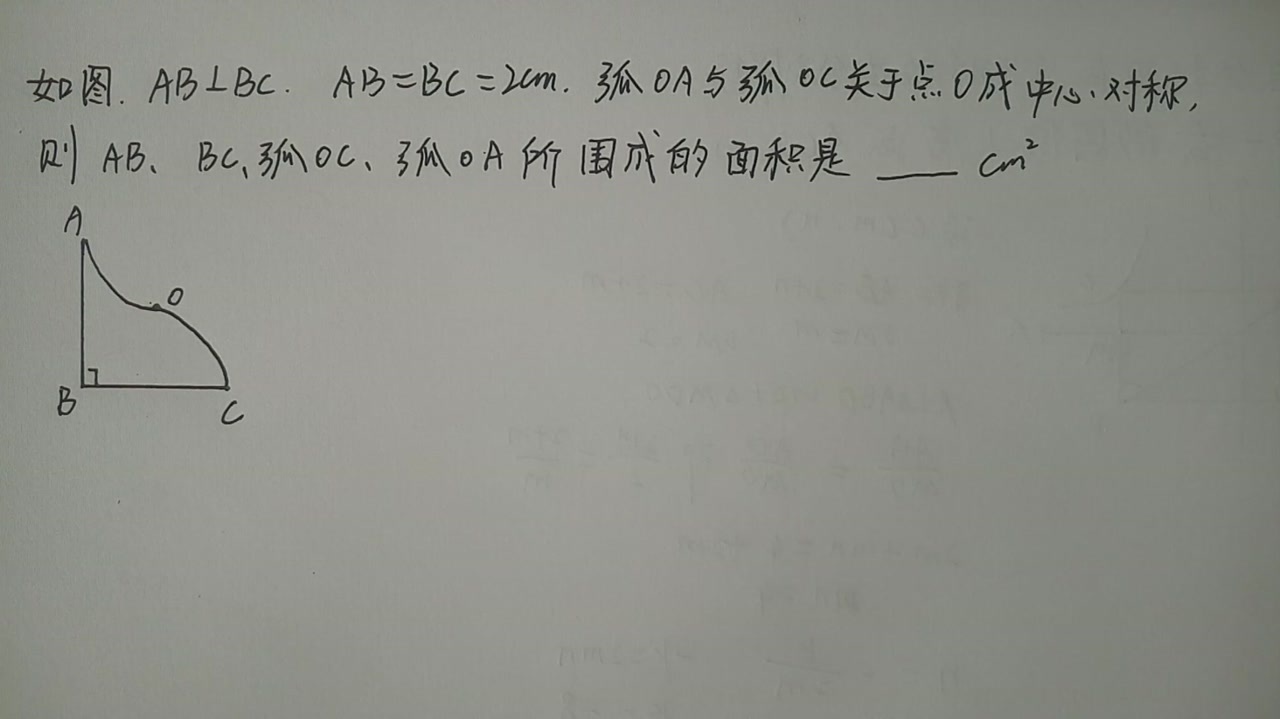 如图. AB⊥BC. AB=BC=2cm. 弧OA与弧OC关于点O成中心对称,
则 AB、BC、弧OC、弧OA所围成的面积是 ___ cm²
A
O
B
C